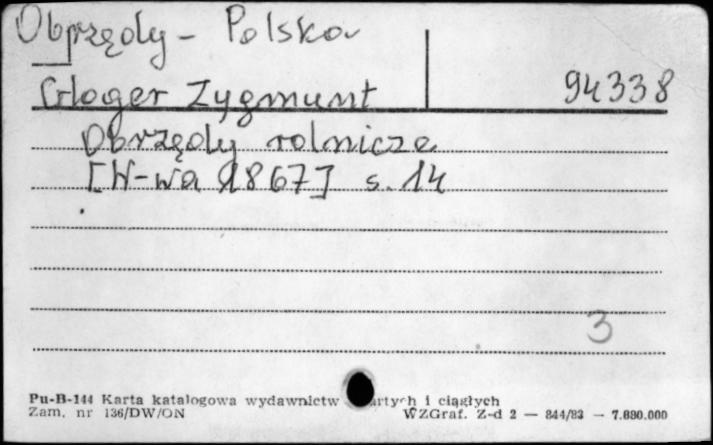 Obrzędy - Polska
Gloger Zygmunt 94338
Obrzędy rolnicze
[W-wa 1867] s. 14
3
Pu-B-144 Karta katalogowa wydawnictw i ciągłych
Zam. nr 136/DW/ON WZGraf. Z-d 2 — 844/83 — 7.880.000